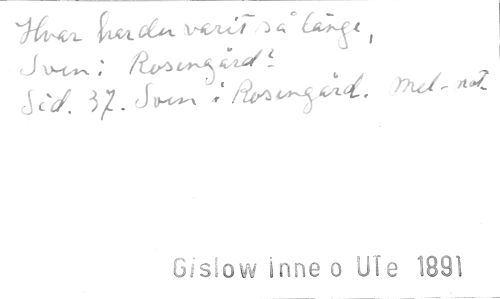 Hvar har du varit så länge,
Sven i Rosengård?
Sid. 37. Sven i Rosengård. Mel-not
Gislow Inne o UTe 1891